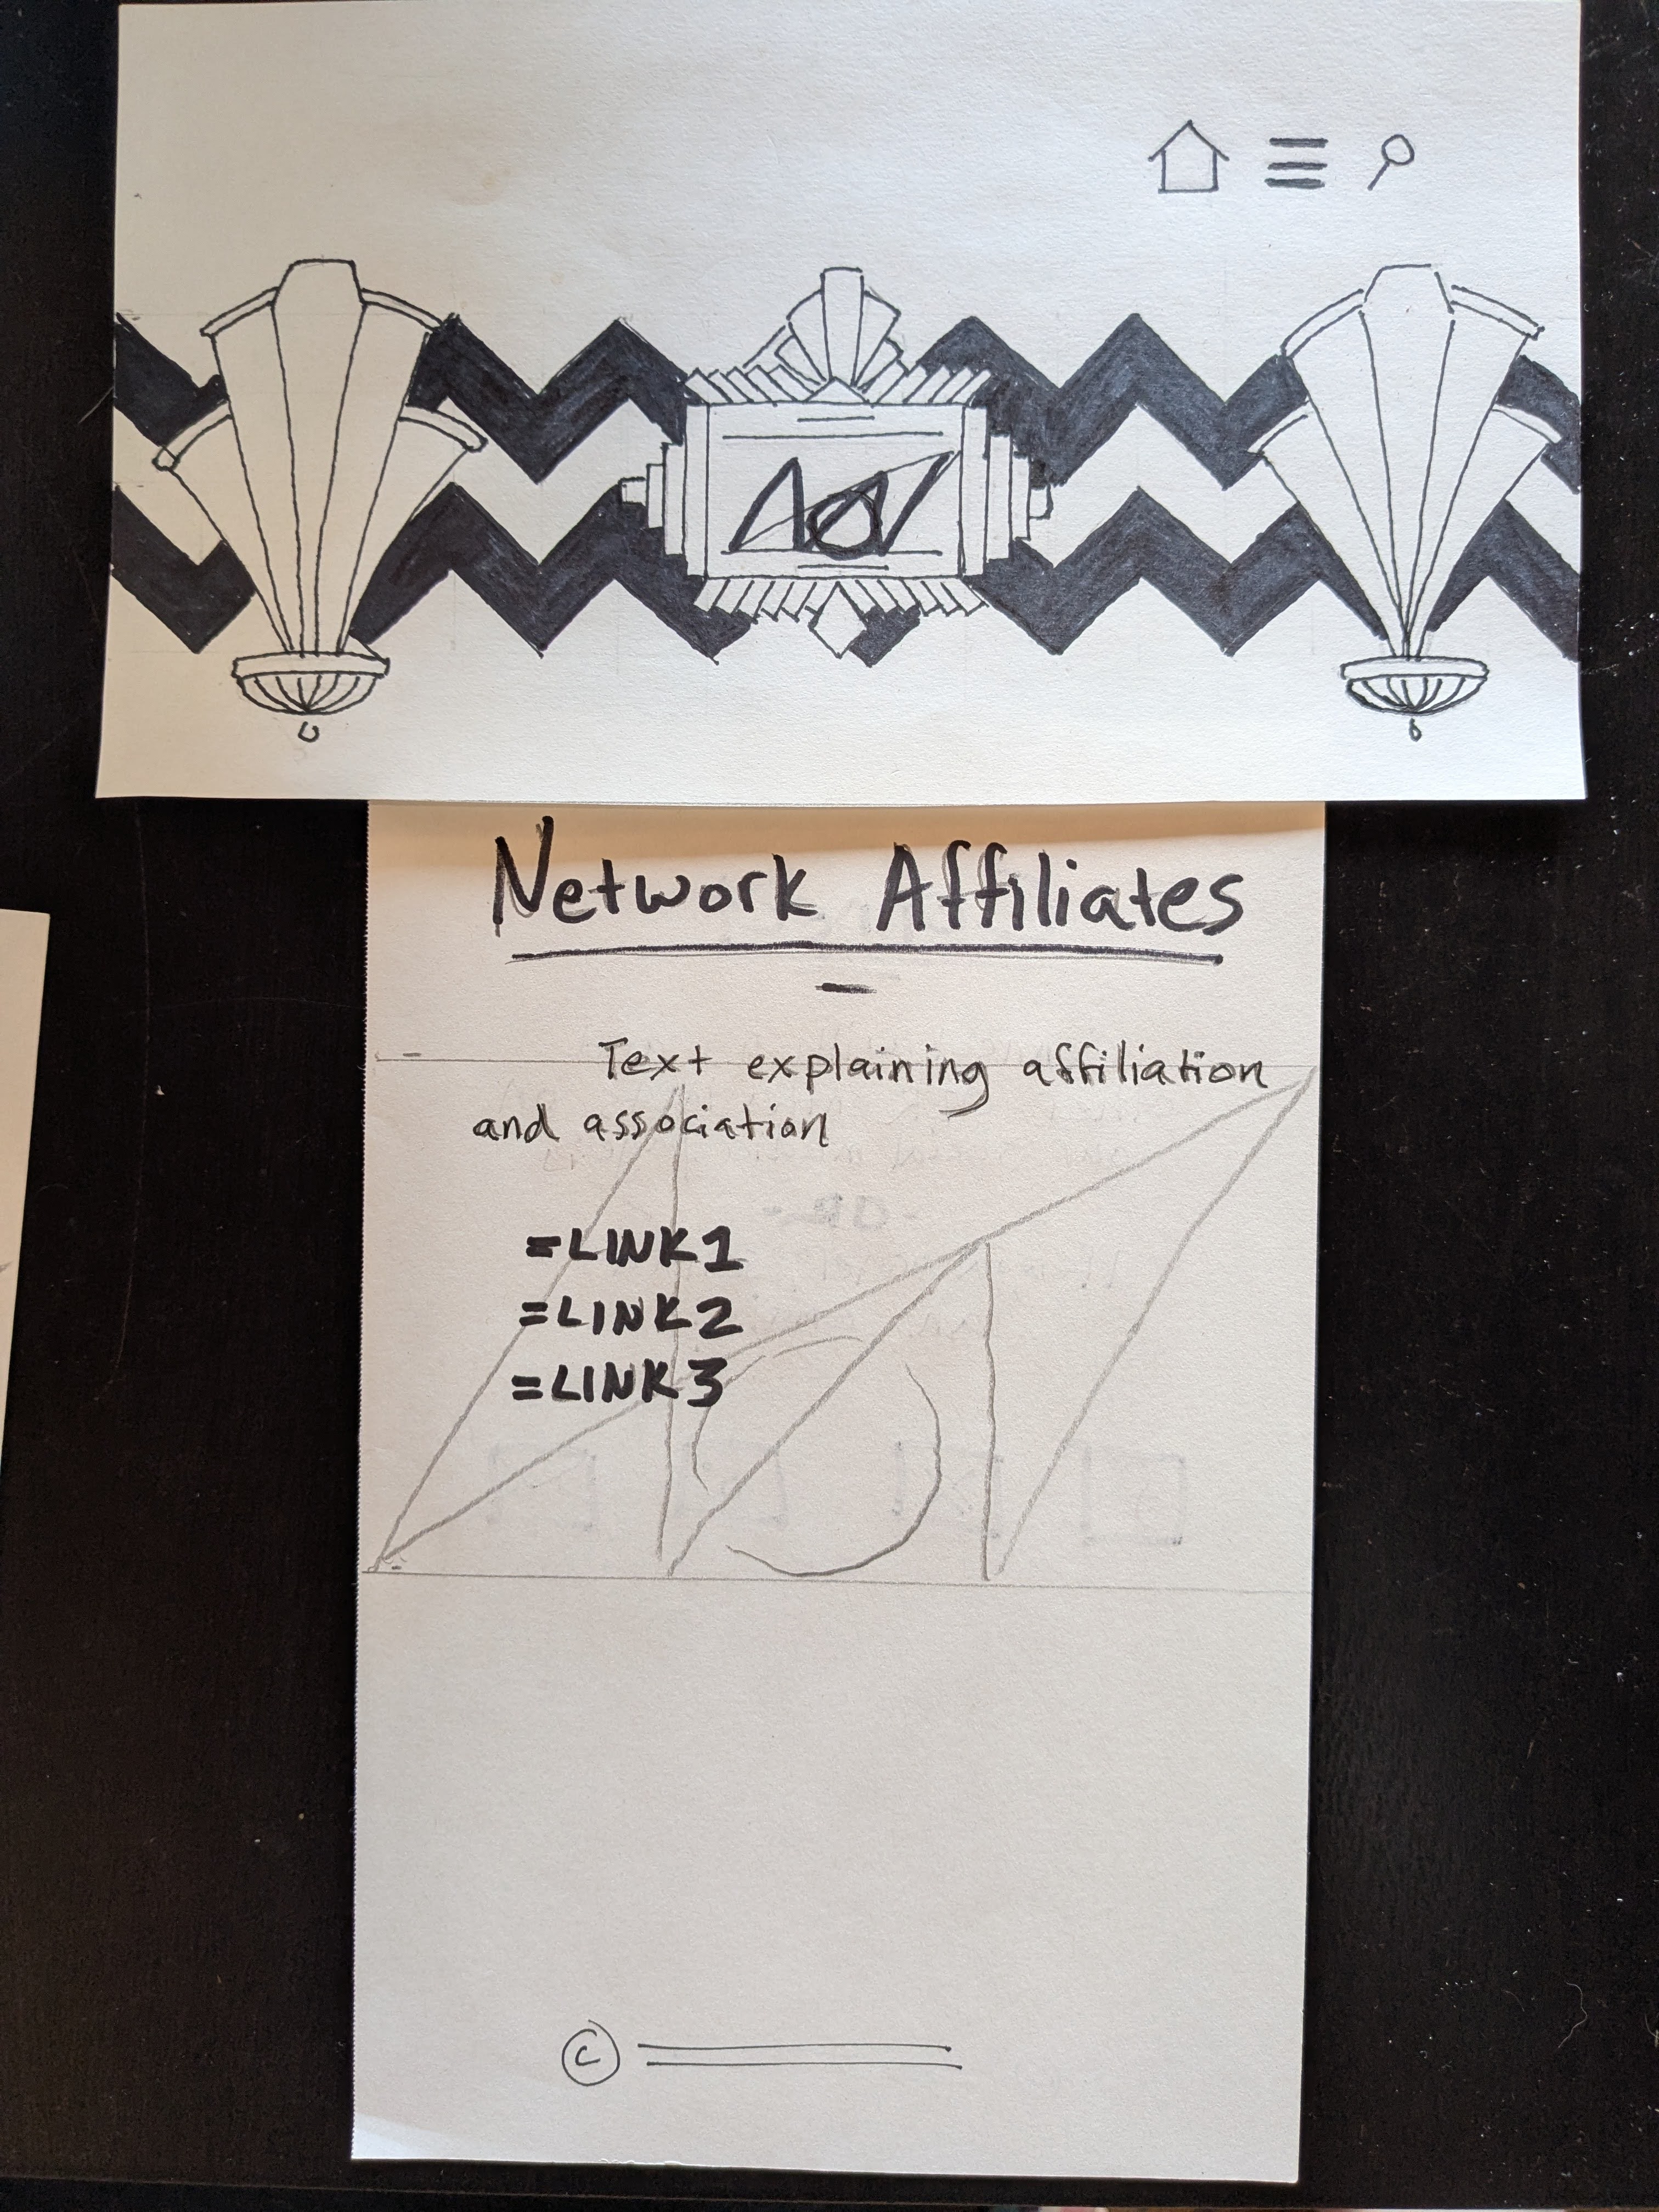 Network Affiliates
Text explaining affiliation
and association
=LINK1
=LINK2
=LINK3
©